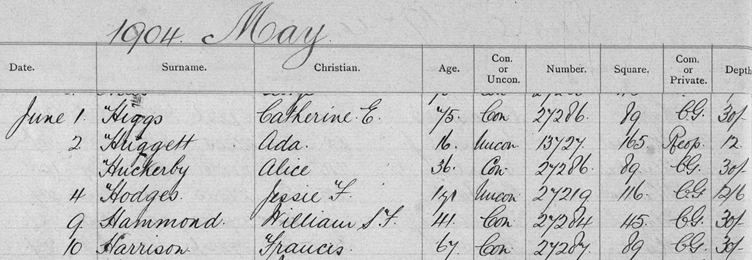 1904. May.
Date. Surname. Christian. Age. Con. or Uncon. Number. Square. Com. or Private. Depth
June 1. Higgs Catherine E. 75. Con 27286. 89 C.G. 30/.
2 Huggett Ada. 16. Uncon 13727. 165 Reop. 12
Huckerby Alice 36. Con 27286. 89. C.G. 30/.
4 Hodges. Jessie F. Uncon 27219 116. C.G 12/6
9 Hammond. William S. F. 41. Con 27284 45. C.G. 30/.
10 Harrison. Francis. 67. Con 27287. 89 C.G. 30/.